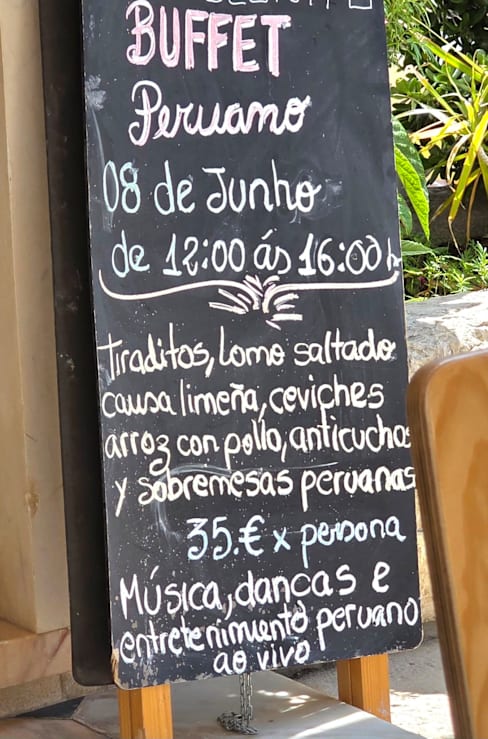 BUFFET
Peruano
08 de Junho
de 12:00 ás 16:00 h
Tiraditos, Lomo saltado
causa limeña, ceviches
arroz con pollo, anticuchos
y sobremesas peruanas
35.€ x persona
Música, dancas e
entretenimiento peruano
ao vivo